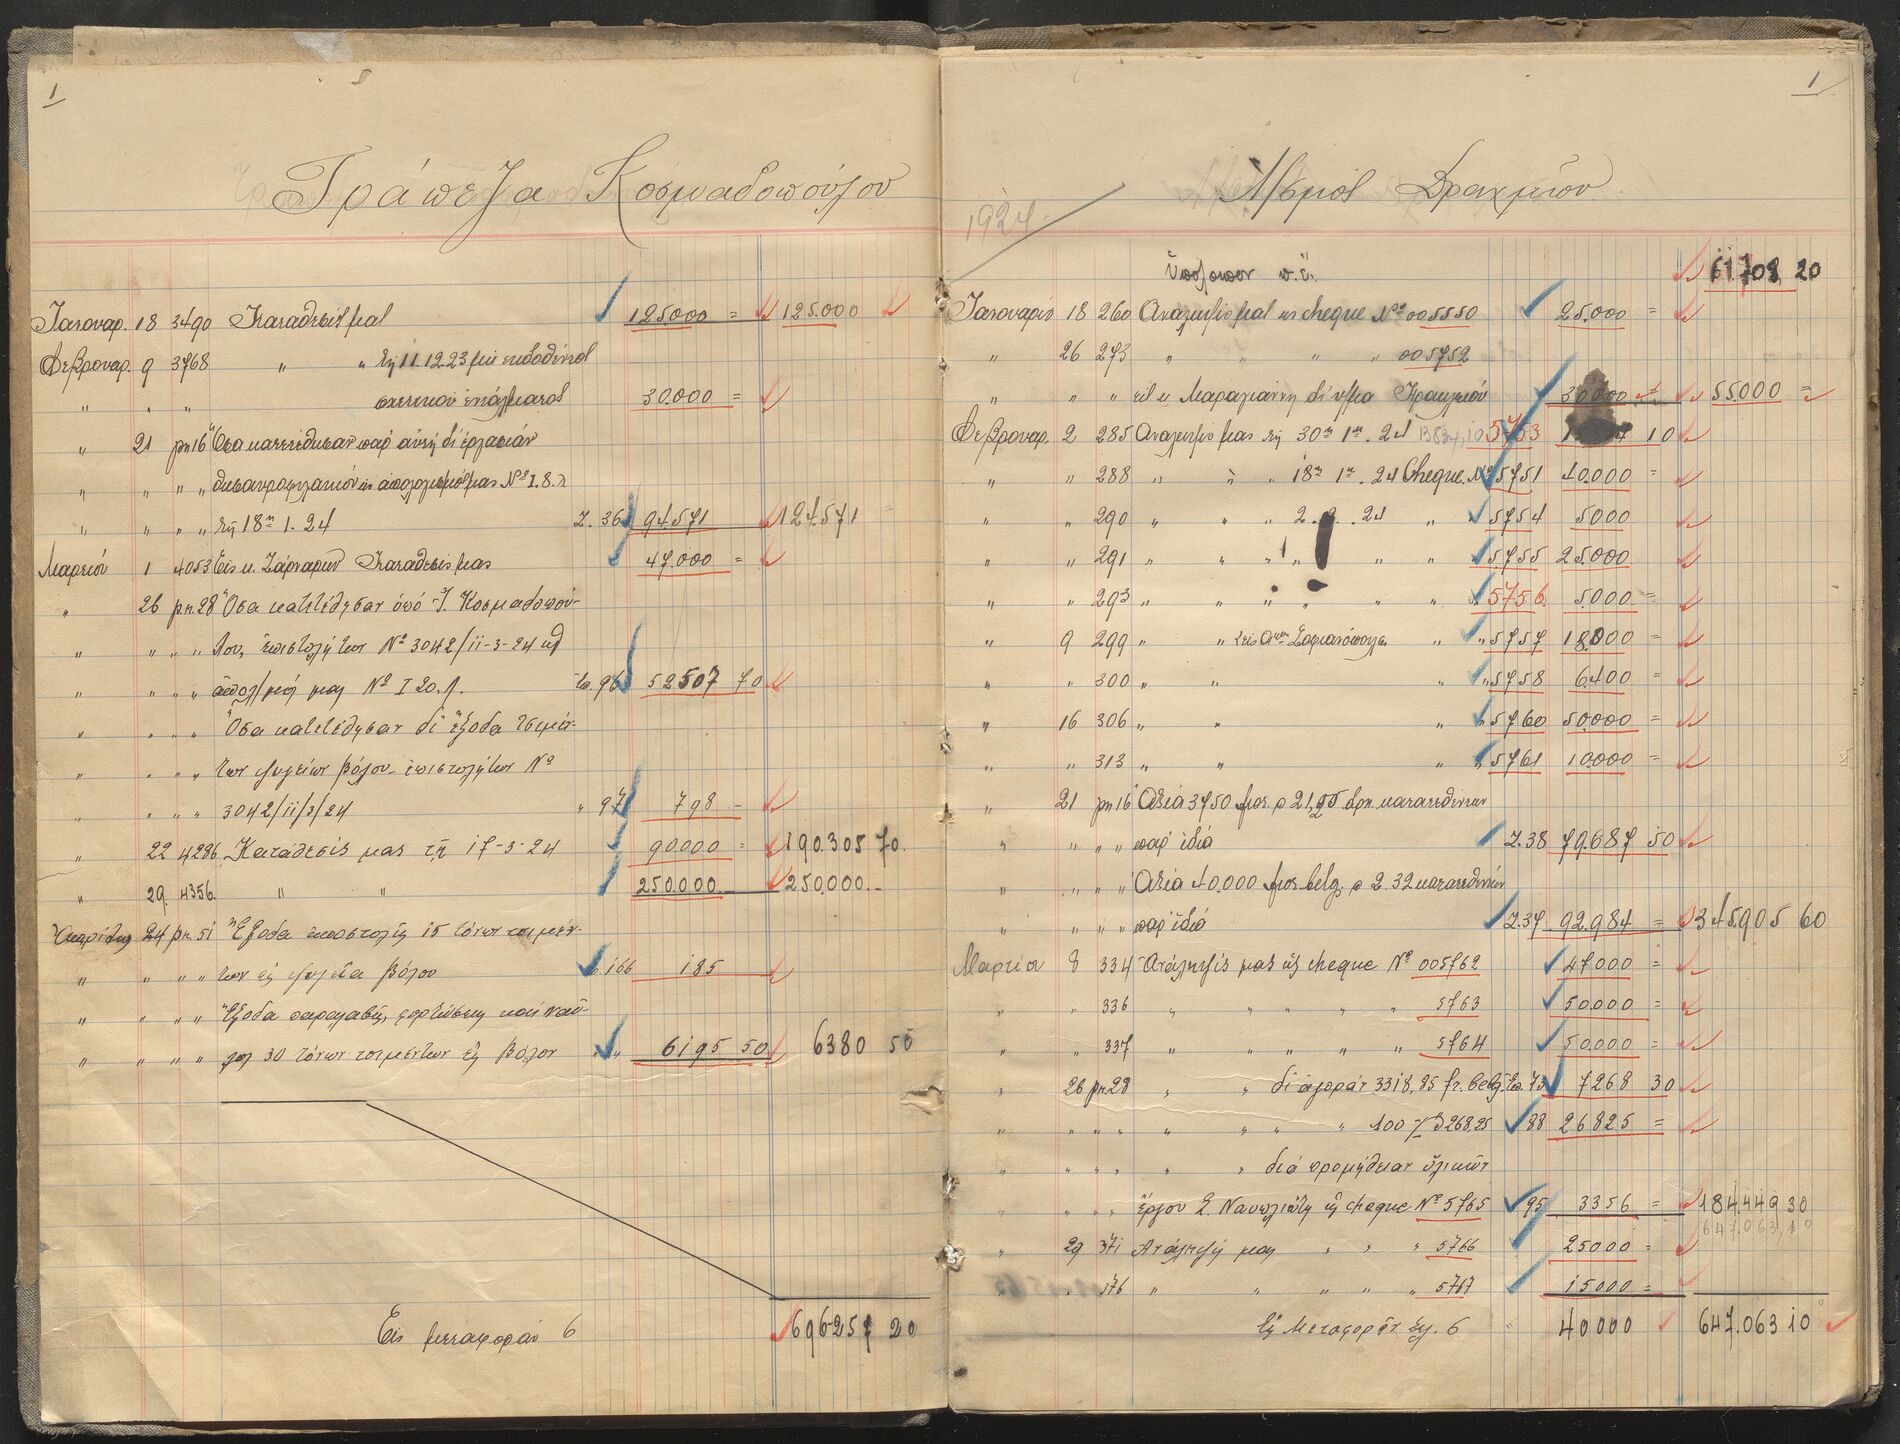 1
Τράπεζα Κοσμαδοπούλου
Ιανουαρ. 18 3490 Κατάθεσίς μας 125.000 = 125.000
Φεβρουαρ. 9 3768 " " τῇ 11.12.23 μὴ ἐκδοθέντος
" " " σχετικοῦ ἐντάλματος 30.000 =
" 21 ρη 16 Ὅσα κατετέθησαν παρ' αὐτῇ δι' ἐργασιῶν
" " " " ἀπολογισμός μας Nº I.8.
" " " " τῇ 18η 1. 24 Σ. 36 94571 124.571
Μαρτίου 1 4053 Εἰς κ. Κατάθεσίς μας 47.000 =
" 26 ρη.28 Ὅσα κατετέθησαν ὑπό Τ. Κοσμαδοπού-
" " " " λου, ἐπιστολή των Nº 3042/11-3-24 κ
" " " " ἀπολ/μός μας Nº I 20. 96 52507 70
" " " " Ὅσα κατετέθησαν δι' ἔξοδα τσιμέν-
" " " " των ψυγείων Βόλου ἐπιστολή των Nº
" " " " 3042/11/3/24 " 97 798 -
" 22 4286 Κατάθεσίς μας τῇ 17-3-24 90.000 = 190.305 70.
" 29. 4356. " " 250.000. 250.000.-
Ἀπρίλιος 24 ρη.51 Ἔξοδα ἀποστολῆς 15 τόνων τσιμέν-
" " " " των εἰς ψυγεῖα Βόλου 166 185
" " " " Ἔξοδα παραλαβῆς, φορτώσεως καί ναύ-
" " " " λος 30 τόνων τσιμέντων εἰς Βόλον " " 6195 50 6380 50
Εἰς μεταφοράν 6 696257 20
1
Λ/σμός Δραχμῶν
1924
Ὑπόλοιπον π.ἔ. 61708 20
Ιανουαρίο 18 260 Ἀνάληψίς μας ὡς cheque Nº 005550 25.000 =
" 26 273 " " " " 005752
" " " 30000 55.000 =
Φεβρουαρ. 2 285 Ἀνάληψίς μας τῇ 30η 1ου. 24 13834,10 5753 10
" " 288 " " " 18η 1ου. 24 Cheque Nº 5751 40.000 =
" " 290 " " " 2. 2. 24 " 5754 5000 =
" " 291 " " " " " " 5755 25.000
" " 293 " " " " " " 5756. 5.000 =
" 9 299 " " " 5757 18.000 =
" " 300 " " " " 5758 6.400 =
" 16 306 " " " " 5760 50.000 =
" " 313 " " " " 5761 10000 =
" 21 ρη 16 Ἀξία 3750 φρ. @ 21,25 δρχ. κατατεθέντων
" " " " παρ' ἰδίᾳ Σ.38 79.687 50
" " " " Ἀξία 40.000 φρ. belg. @ 2.32 κατατεθέντων
" " " " παρ' ἰδίᾳ Σ.37 92.984 = 345905 60
Μαρτίου 8 334 Ἀνάληψίς μας ὡς cheque Nº 005762 47000 =
" " 336 " " " " 5763 50.000 =
" " 337 " " " " 5764 50.000 =
" 26 ρη.28 " " δι' ἀγοράν 3318,85 fr. belg. 73 7268 30
" " " " " " " 100 268.25 88 26825 =
" " " " " " διά προμήθειαν ὑλικῶν
" " " ἔργου Nº 5765 95 3356 = 184.449 30
647.063,10
" 29 371 Ἀνάληψίς μας " " " 5766 25000 =
" " 376 " " " " " 5767 15000 =
Εἰς Μεταφοράν Σελ. 6 40000 647.063 10